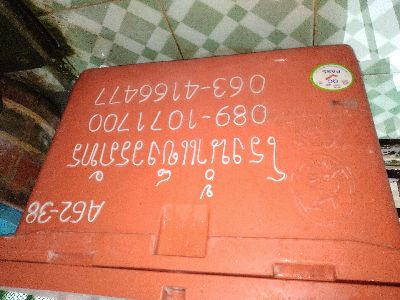 A62-38
โรงน้ำแข็งวรภัทร
089-1071700
063-4166477
QC
PASS